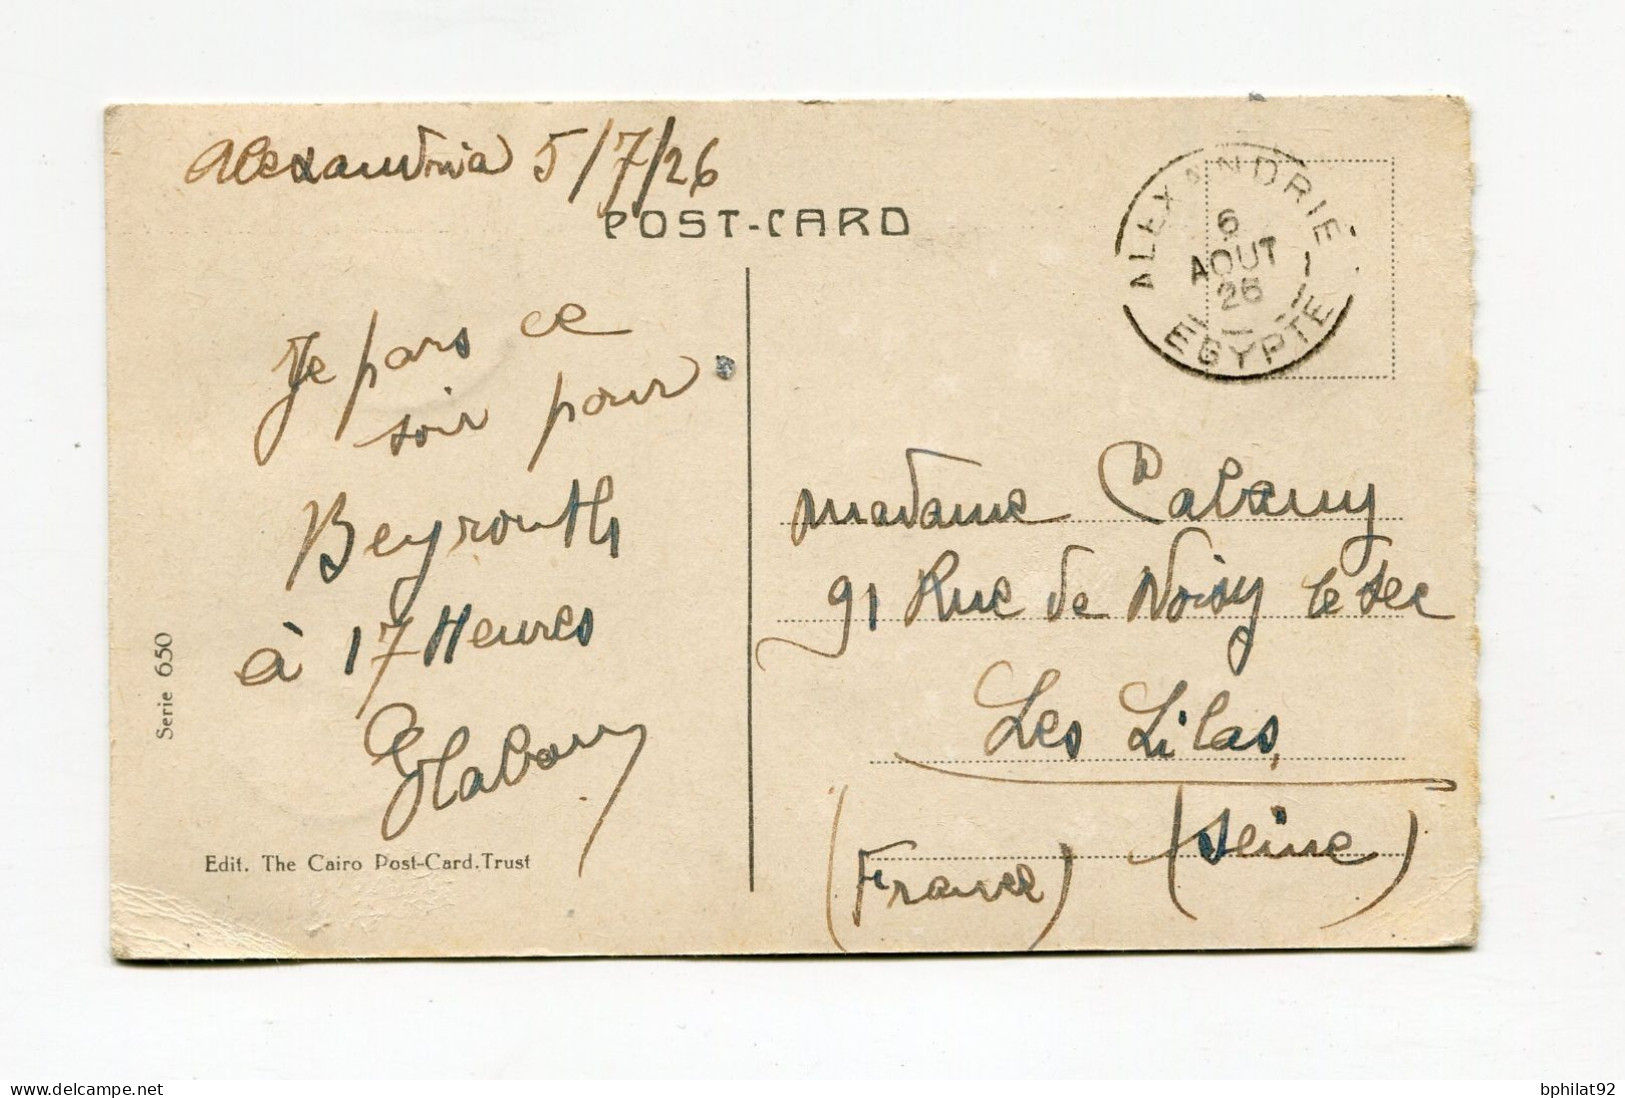 Alexandria 5/7/26
POST-CARD
ALEXANDRIE
6
AOUT
26
EGYPTE
Je pars ce
soir pour
Beyrouth
à 17 Heures
Serie 650
Edit. The Cairo Post-Card.Trust
Madame
91 Rue de Noisy le Sec
Les Lilas
(Seine)
(France)
delcampe.net
bphilat92